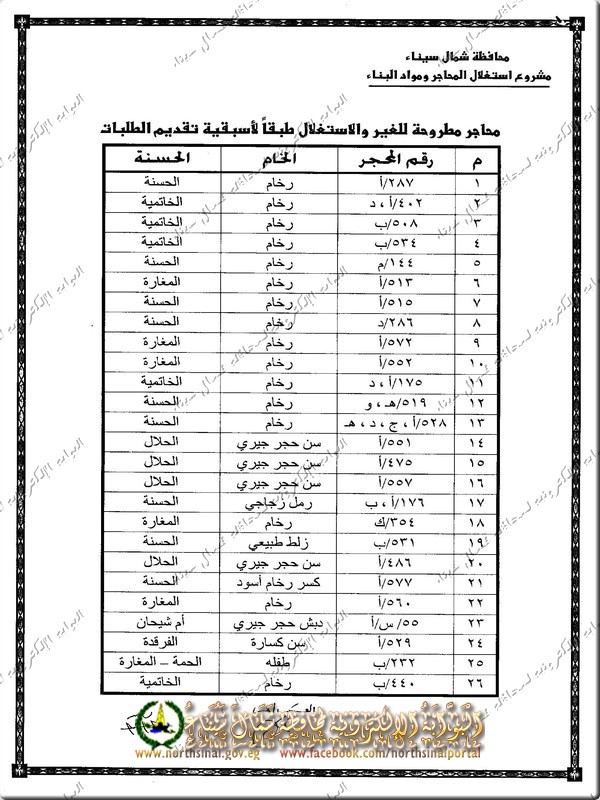 محافظة شمال سيناء
مشروع استغلال المحاجر ومواد البناء
محاجر مطروحة للغير والاستغلال طبقاً لأسبقية تقديم الطلبات
م رقم المحجر الخام الحسنة
١ ٢٨٧/أ رخام الحسنة
٢ ٤٠٢/أ ، د رخام الخاتمية
٣ ٥٠٨/ب رخام الخاتمية
٤ ٥٣٤/ب رخام الخاتمية
٥ ١٤٤/م رخام الحسنة
٦ ٥١٣/أ رخام المغارة
٧ ٥١٥/أ رخام الحسنة
٨ ٢٨٦/د رخام الحسنة
٩ ٥٧٢/أ رخام المغارة
١٠ ٥٥٢/أ رخام المغارة
١١ ١٧٥/أ ، د رخام الخاتمية
١٢ ٥١٩/هـ ، و رخام الحسنة
١٣ ٥٢٨/أ ، ج ، د ، هـ رخام الحسنة
١٤ ٥٥١/أ سن حجر جيري الحلال
١٥ ٤٧٥/أ سن حجر جيري الحلال
١٦ ٥٥٧/أ سن حجر جيري الحلال
١٧ ١٧٦/أ ، ب رمل زجاجي الحسنة
١٨ ٣٥٤/ك رخام المغارة
١٩ ٥٣١/ب زلط طبيعي الحسنة
٢٠ ٤٨٦/أ سن حجر جيري الحلال
٢١ ٥٧٧/أ كسر رخام أسود الحسنة
٢٢ ٥٦٠/أ رخام المغارة
٢٣ ٥٥/س/أ دبش حجر جيري أم شيحان
٢٤ ٥٢٩/أ سن كسارة الفرقدة
٢٥ ٢٣٢/ب طفله الحمة – المغارة
٢٦ ٤٤٠/ب رخام الخاتمية
البوابة الإلكترونية لمحافظة شمال سيناء
www.northsinai.gov.eg www.facebook.com/northsinaiportal